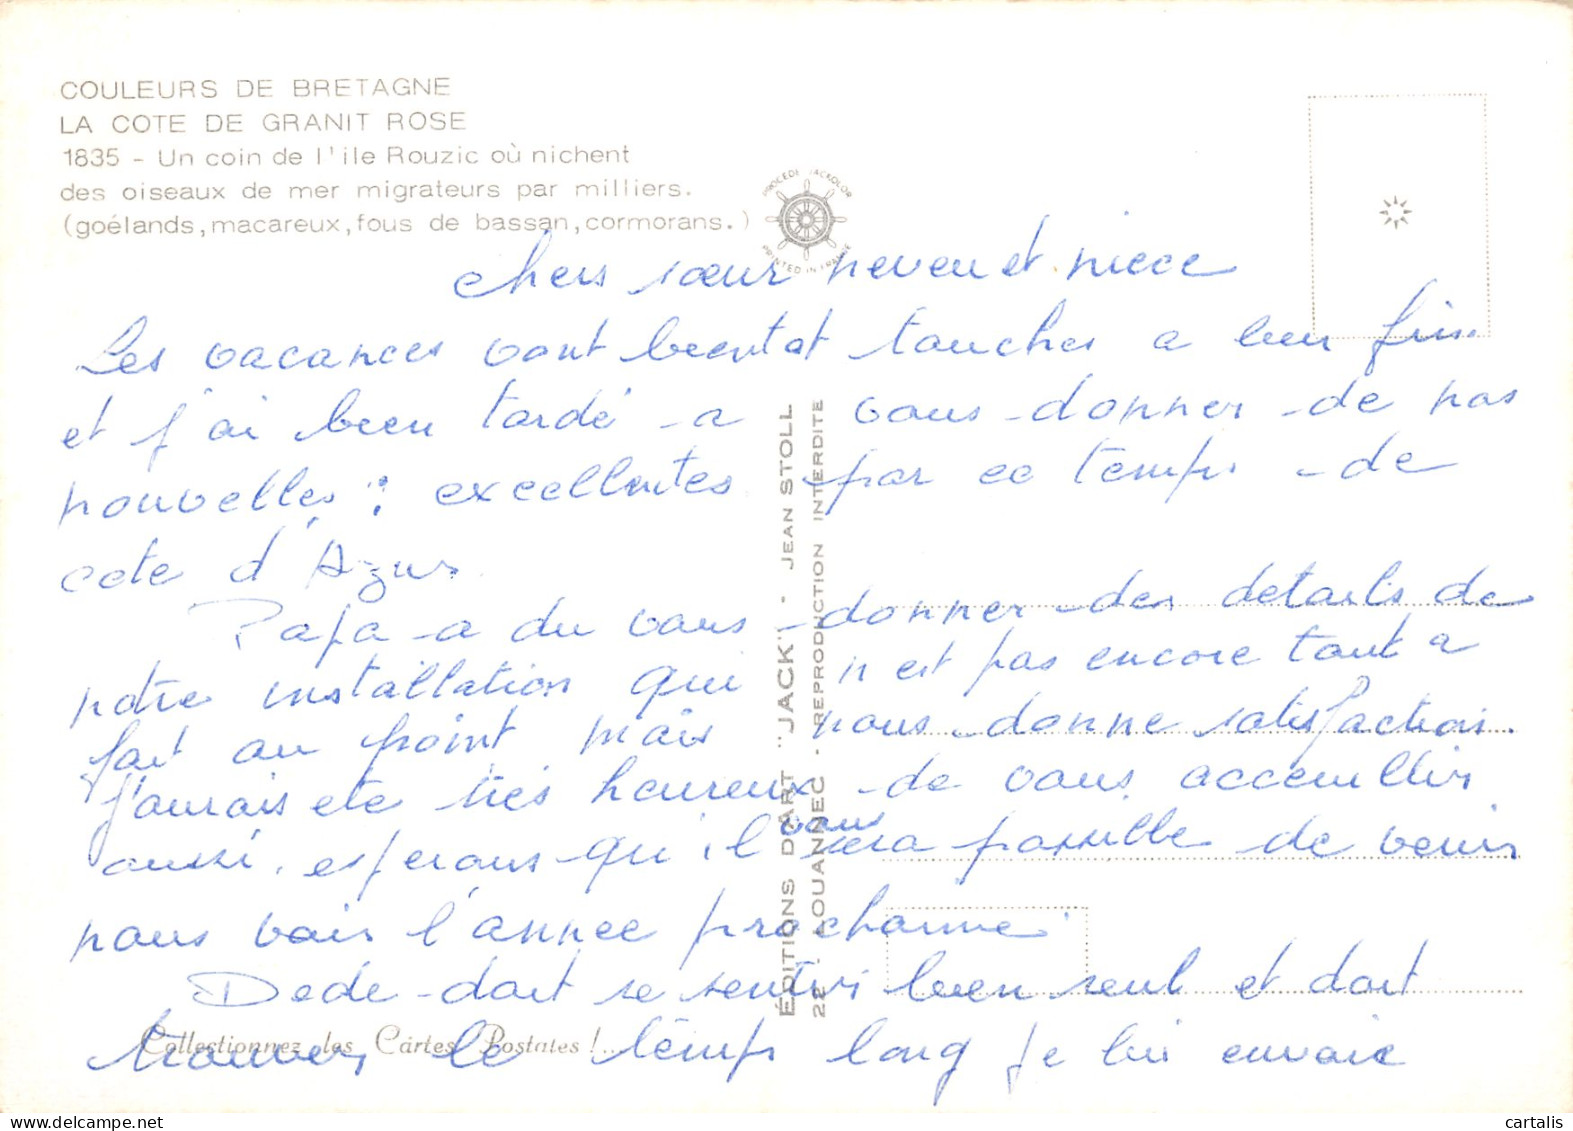 COULEURS DE BRETAGNE
LA COTE DE GRANIT ROSE
1835 - Un coin de l'ile Rouzic où nichent
des oiseaux de mer migrateurs par milliers.
(goélands, macareux, fous de bassan, cormorans.)
PROCEDE JACKOLOR
PRINTED IN FRANCE
chers sœur neveu et niece
Les vacances vont bientot toucher a leur fin
et j'ai bien tardé a vous donner de nos
nouvelles : excellentes par ce temps de
cote d'Azur.
Papa a du vous donner des details de
notre installation qui n est pas encore tout a
fait au point mais nous donne satisfaction.
J'aurais ete très heureux de vous acceuillir
aussi. esperons qu'il vous sera possible de venir
nous voir l'annee prochaine.
Dédé doit se sentir bien seul et doit
trouver le temps long je lui envoie
Collectionnez les Cartes Postales !...
ÉDITIONS D'ART "JACK" - JEAN STOLL
22 - LOUANNEC - REPRODUCTION INTERDITE
cartalis